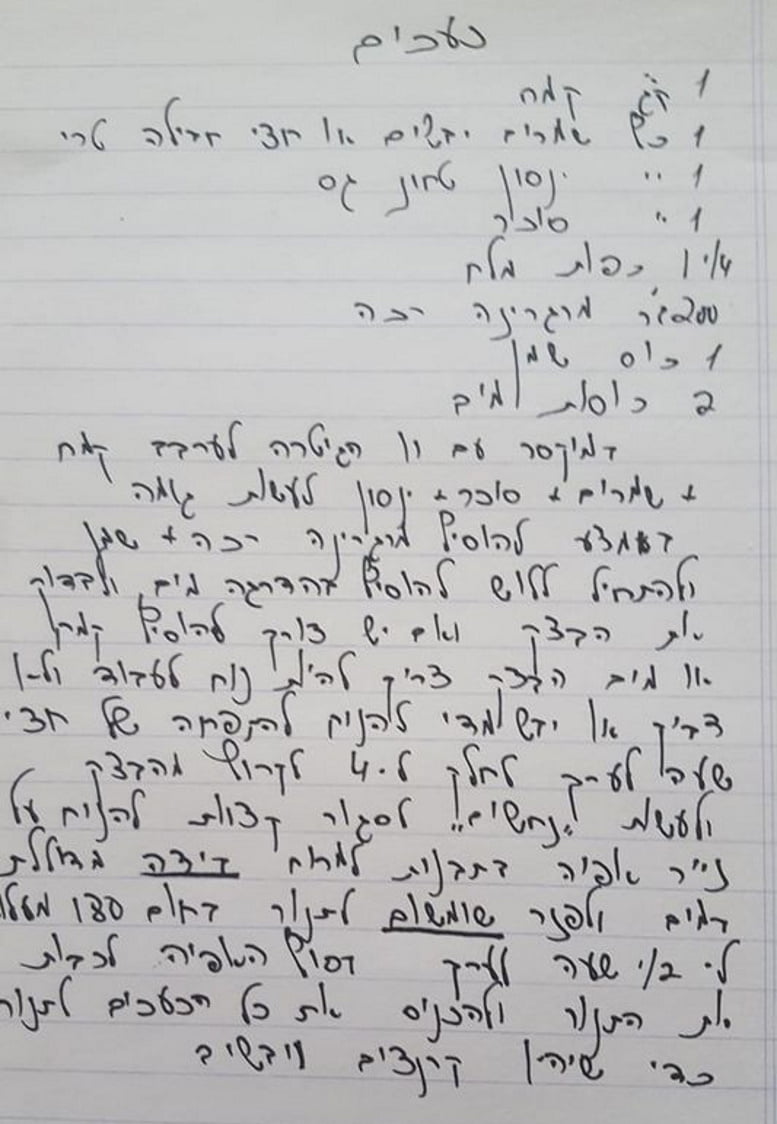 כעכים
1 קג קמח
1 כף שמרים יבשים או חצי חבילה טרי
1 " ינסון טחון גס
1 " סוכר
1 1/4 כפות מלח
200 גר' מרגרינה רכה
1 כוס שמן
2 כוסות מים
במיקסר עם וו הגיטרה לערבב קמח
+ שמרים + סוכר + ינסון לעשות גומה
באמצע להוסיף מרגרינה רכה + שמן
ולהתחיל ללוש להוסיף בהדרגה מים ולבדוק
את הבצק ואם יש צורך להוסיף קמח
או מים הבצק צריך להיות נוח לעבוד ולא
דביק או יבש מדי להניח להתפחה של חצי
שעה לערך לחלק ל-40 לקרוץ מהבצק
ולעשות "נחשים" לסגור קצוות להניח על
נייר אפיה בתבנית למרוח ביצה מדוללת
במים ולפזר שומשום לתנור בחום 180 מעלו
ל 1/2 שעה לערך בסוף האפיה לכבות
את התנור ולהכניס את כל הכעכים לתנור
כדי שיהיו קרנצים ויבשים